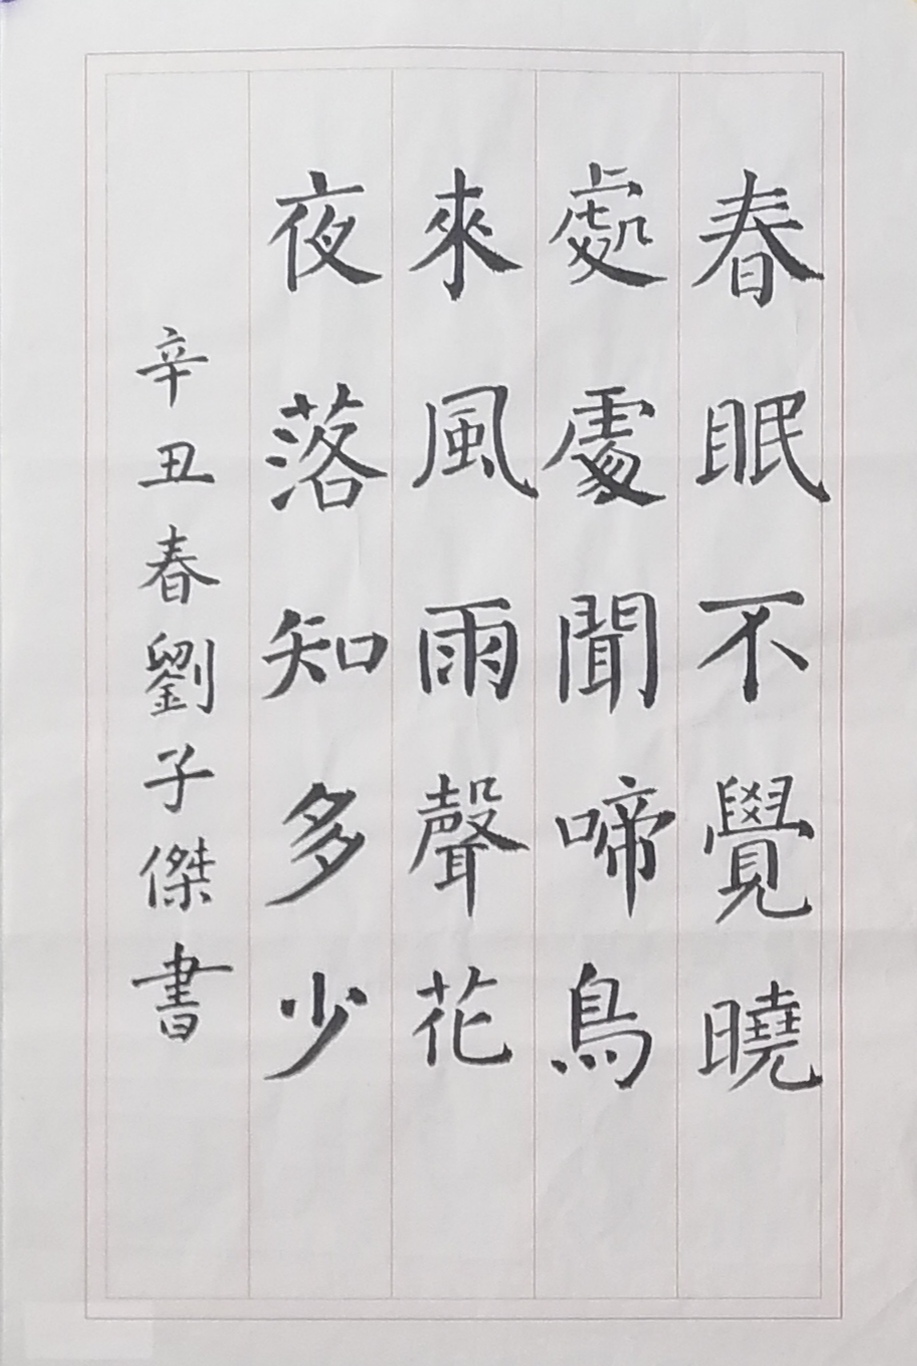 春眠不覺曉
處處聞啼鳥
來風雨聲花
夜落知多少
辛丑春劉子傑書